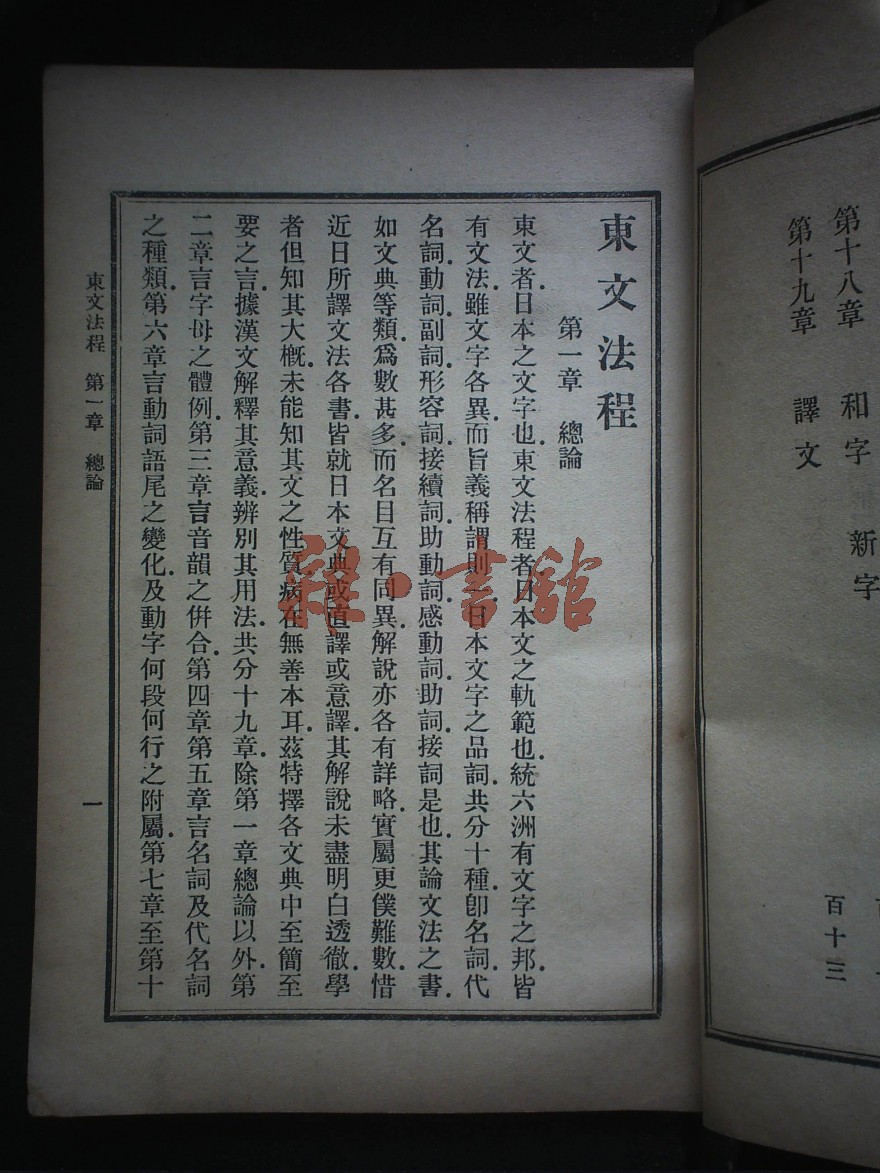 第十八章 和字 新字
第十九章 譯文 百十三
東文法程
第一章 總論
東文者.日本之文字也.東文法程者.日本文之軌範也.統六洲有文字之邦.皆
有文法.雖文字各異.而旨義稱謂則一.日本文字之品詞.共分十種.卽名詞.代
名詞.動詞.副詞.形容詞.接續詞.助動詞.感動詞.助詞.接詞是也.其論文法之書.
如文典等類.爲數甚多.而名目互有同異.解說亦各有詳略.實屬更僕難數.惜
近日所譯文法各書.皆就日本文典.或直譯或意譯.其解說未盡明白透徹.學
者但知其大槪.未能知其文之性質.病在無善本耳.茲特擇各文典中至簡至
要之言.據漢文解釋其意義.辨別其用法.共分十九章.除第一章總論以外.第
二章言字母之體例.第三章言音韻之倂合.第四章第五章言名詞及代名詞
之種類.第六章言動詞語尾之變化.及動字何段何行之附屬.第七章至第十
東文法程 第一章 總論 一
雜·書館